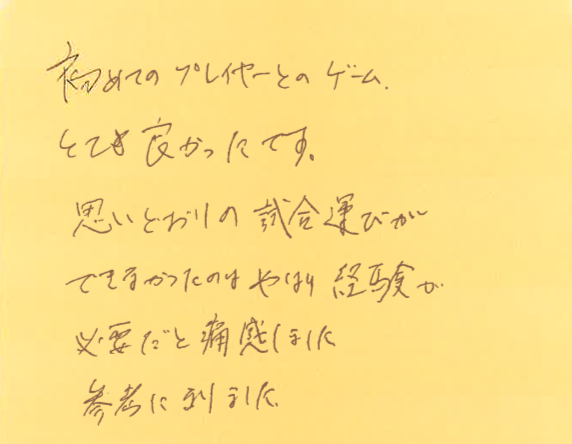 初めてのプレイヤーとのゲーム、
とても良かったです。
思いどおりの試合運びが
できなかったのはやはり経験が
必要だと痛感しました
参考に到りました。